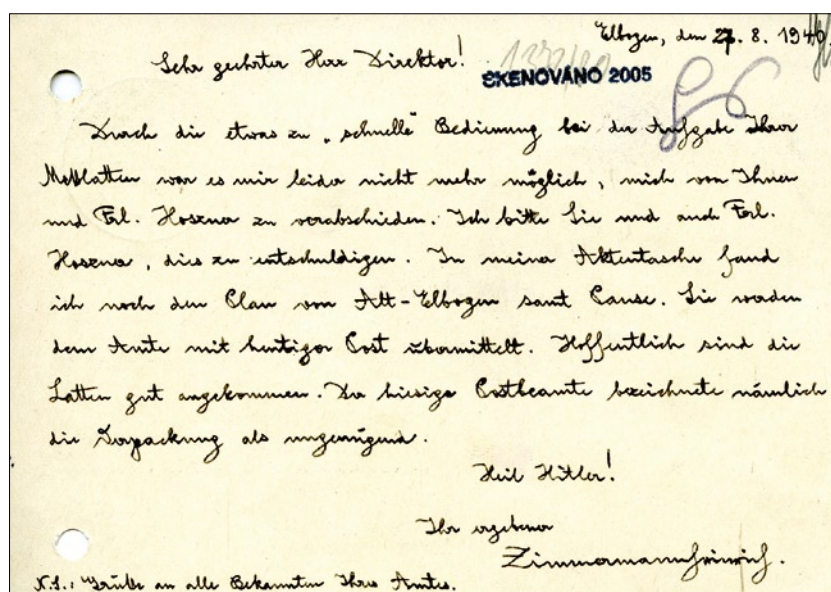 Elbogen, den 27. 8. 1940.
Sehr geehrter Herr Direktor!
1372/80
SKENOVÁNO 2005
Durch die etwas zu „schnelle" Bedienung bei der Aufgabe Ihrer
Meßlatten war es mir leider nicht mehr möglich, mich von Ihnen
und Frl. Hoszner zu verabschieden. Ich bitte Sie und auch Frl.
Hoszner, dies zu entschuldigen. In meiner Aktentasche fand
ich noch den Plan von Alt-Elbogen samt Pause. Sie werden
dem Amte mit heutiger Post übermittelt. Hoffentlich sind die
Latten gut angekommen. Der hiesige Postbeamte bezeichnete nämlich
die Verpackung als ungenügend.
Heil Hitler!
Ihr ergebener
Zimmermann Heinrich.
N.S.: Grüße an alle Bekannten Ihres Amtes.